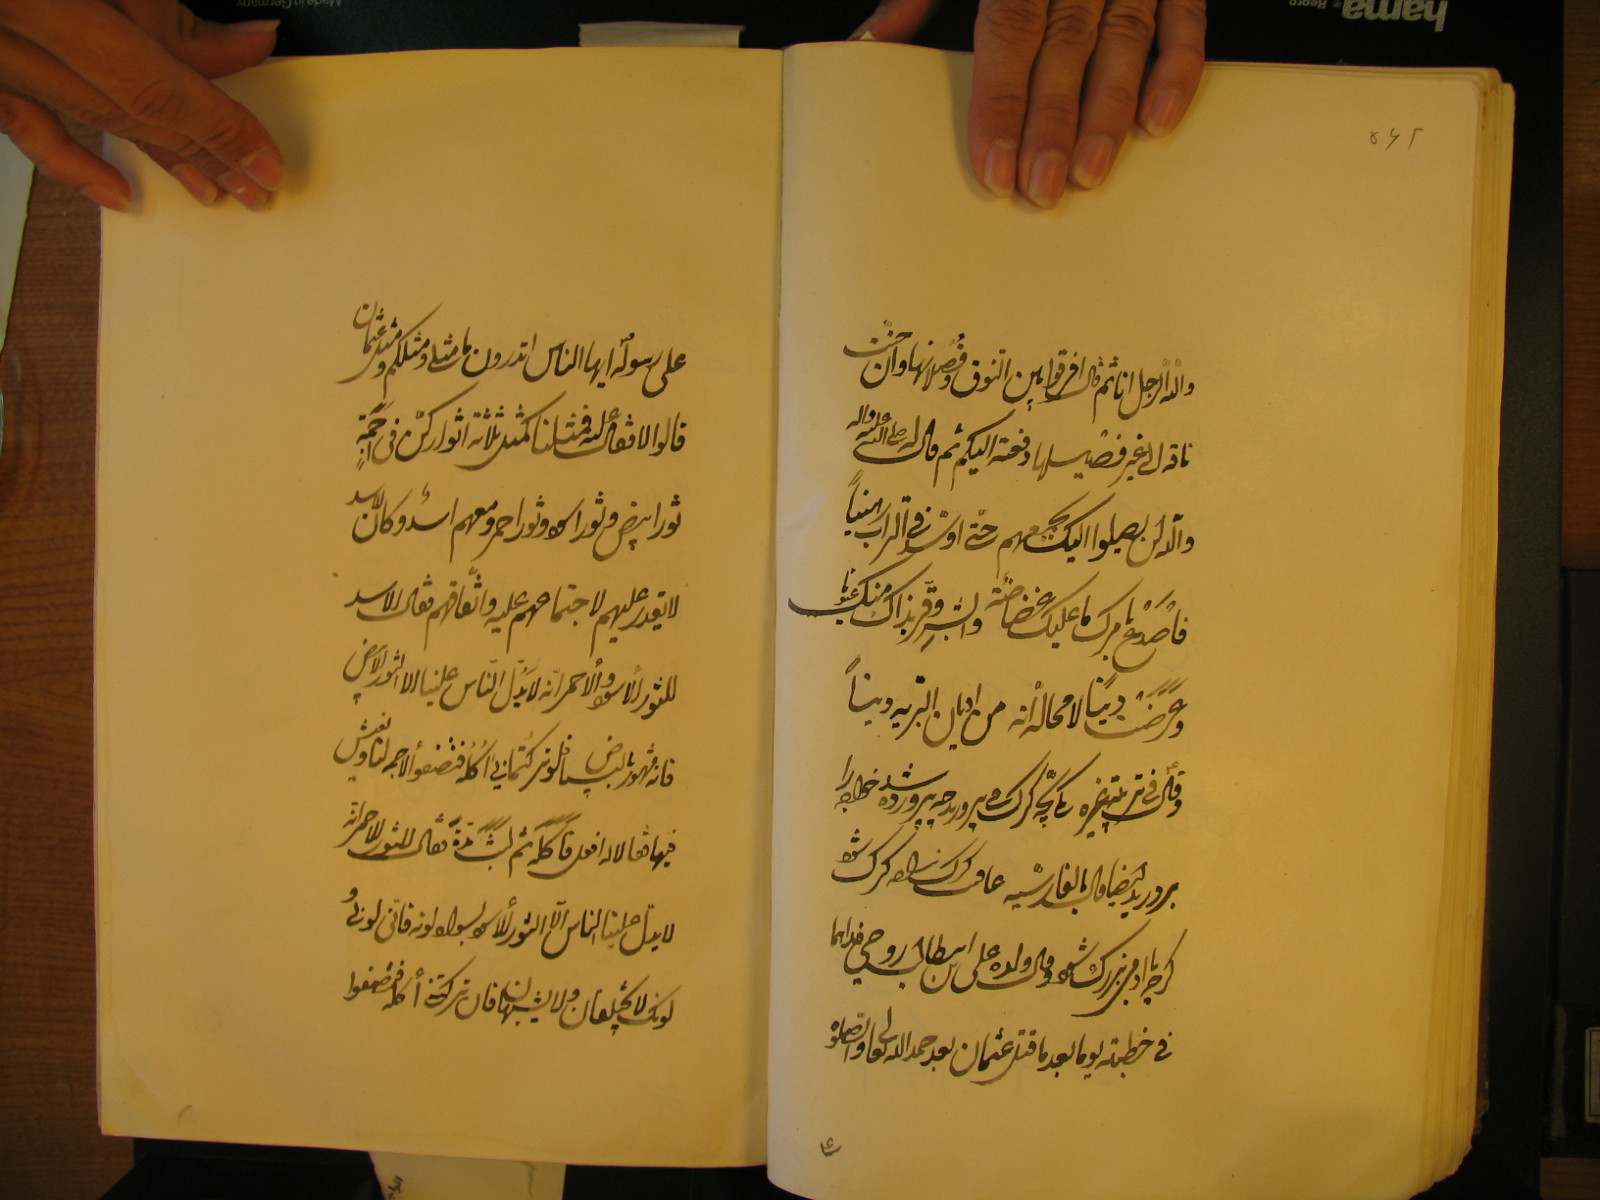 ۵۶۲
والد الرجل انا ثم قال افرقوا بين النوق وفصلانها وان حنت
ناقة الى غير فصيلها دفعته اليكم ثم قال له صلى الله عليه واله
والله لن يصلوا اليك بجمعهم حتى اوسد في التراب
فاصدع بامرك ما عليك غضاضة وابشر وقر بذاك منك عيونا
وعرضت دينا لا محالة انه من اديان البرية دينا
وقال في تربيته غيره
برورید ايضا قال بالفارسية عاقبت گرگ زاده گرگ شود
گرچه با ادمی بزرگ شود وقال ولده علی بن ابيطالب روحی فداهما
في خطبته يوما بعد ما قتل عثمان بعد حمد الله تعالى والصلوة
على رسوله ايها الناس اتدرون ما مثلی ومثلكم ومثل عثمان
قالوا لا فقال ع انه فمثلنا كمثل ثلاثة اثوار كن في اجمة
ثور ابيض وثور اسود وثور احمر ومعهم اسد وكان الاسد
لا يقدر عليهم لاجتماعهم عليه واتفاقهم فقال الاسد
للثور الاسود والاحمر انه لا يدل الناس علينا الا الثور الابيض
فانه مشهور بالبياض فلو تركتمانی اكله فتصفوا الاجمة لنا ونعيش
فيها فقالا له افعل فاكله ثم لبث مدة فقال للثور الاحمر انه
لا يدل علينا الناس الا الثور الاسود بسواد لونه فانی لونی و
لونك لا يختلفان ولا يشتبهان فان تركتنی أكله فتصفوا